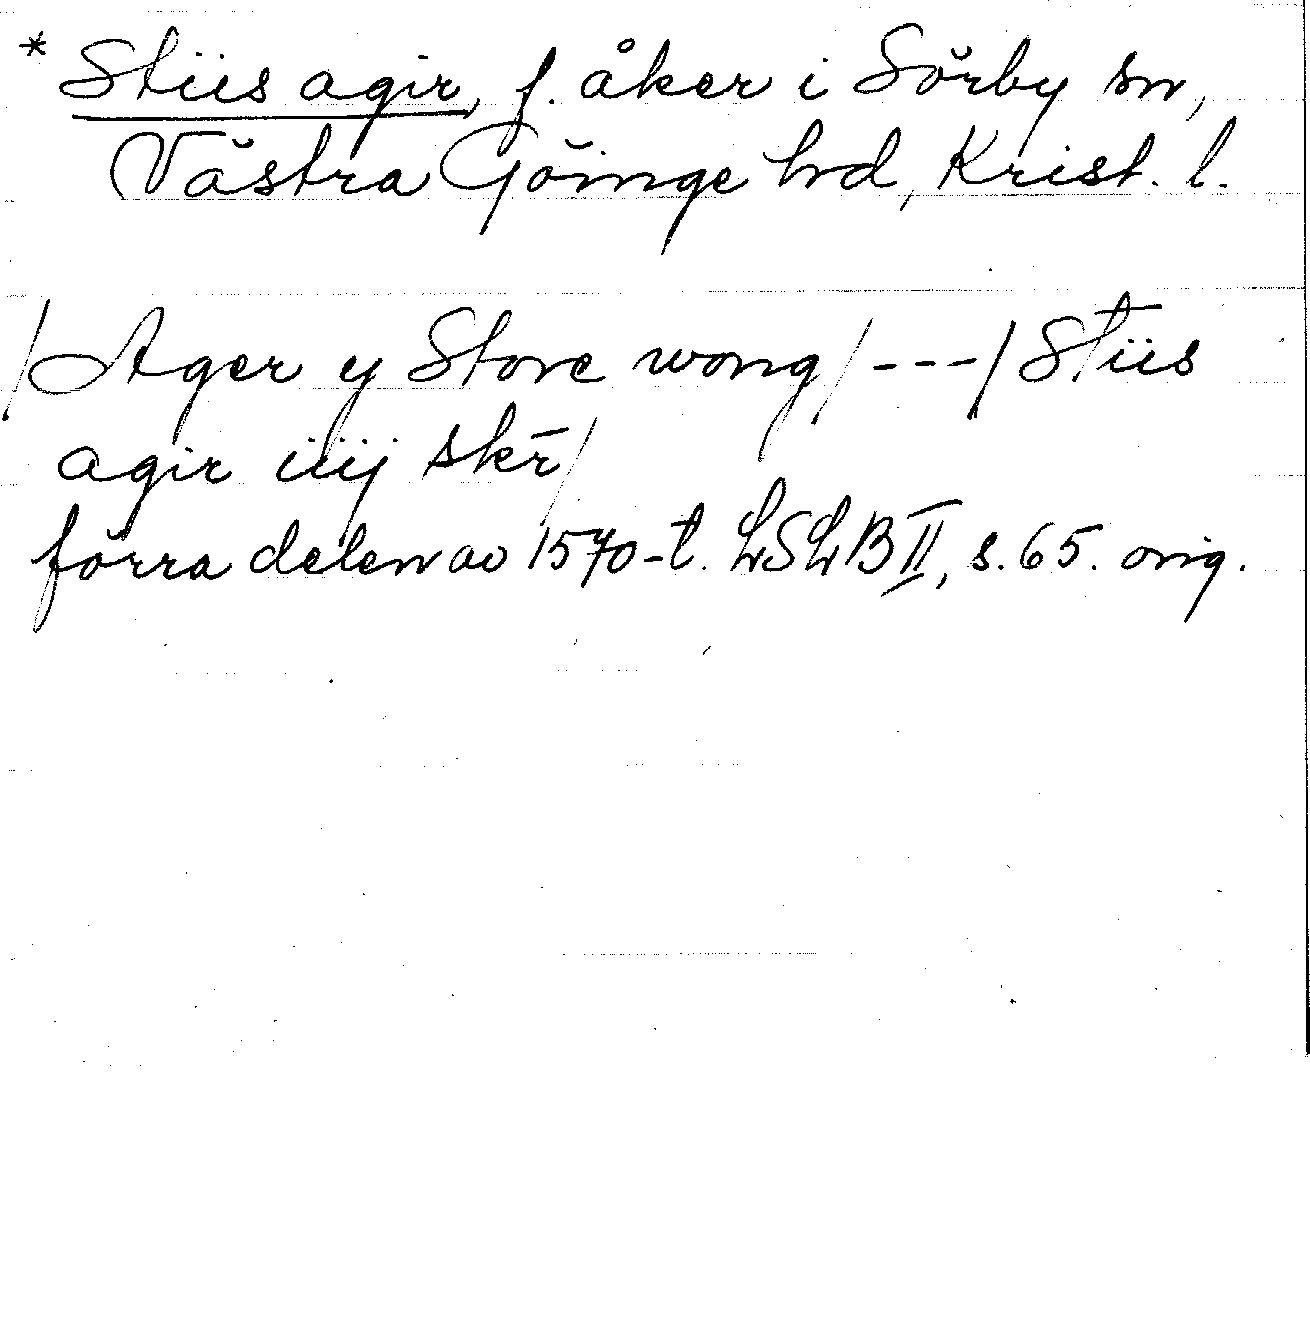 * Stiis agir, f. åker i Sörby sn,
Västra Göinge hrd, Krist. l.
/Ager y Store wong/---/Stiis
agir iiij skr̄/
förra delen av 1570-t. LSLB II, s. 65. orig.